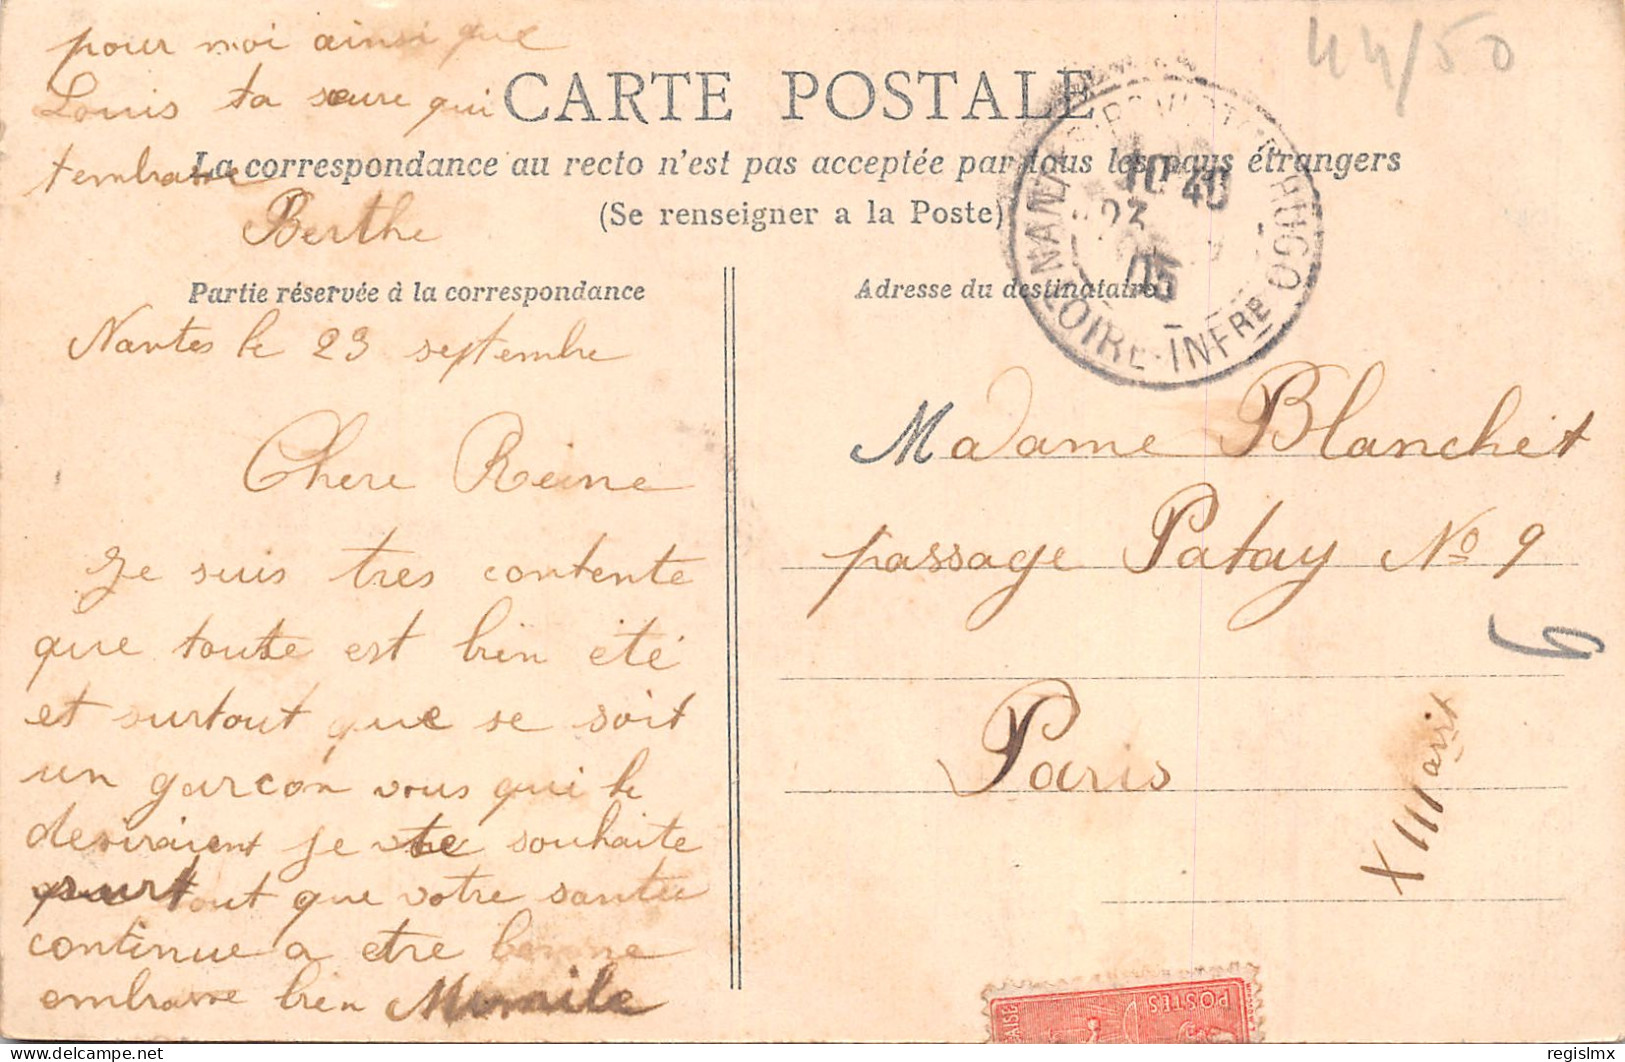 pour moi ainsi que
Louis ta sœure qui
t'embrasse
Berthe
44/50
CARTE POSTALE
La correspondance au recto n'est pas acceptée par tous les pays étrangers
(Se renseigner a la Poste)
NANTES
HUGO
LOIRE-INFRE
10 40
23
05
Partie réservée à la correspondance
Nantes le 23 septembre
Chere Reine
Je suis tres contente
que toute est bien été
et surtout que se soit
un garcon vous qui le
desiraient je te souhaite
surtout que votre santée
continue a etre bonne
embrasse bien
Adresse du destinataire
Madame Blanchet
passage Patay No 9
Paris
XIII arrit
POSTES
www.delcampe.net
regislmx